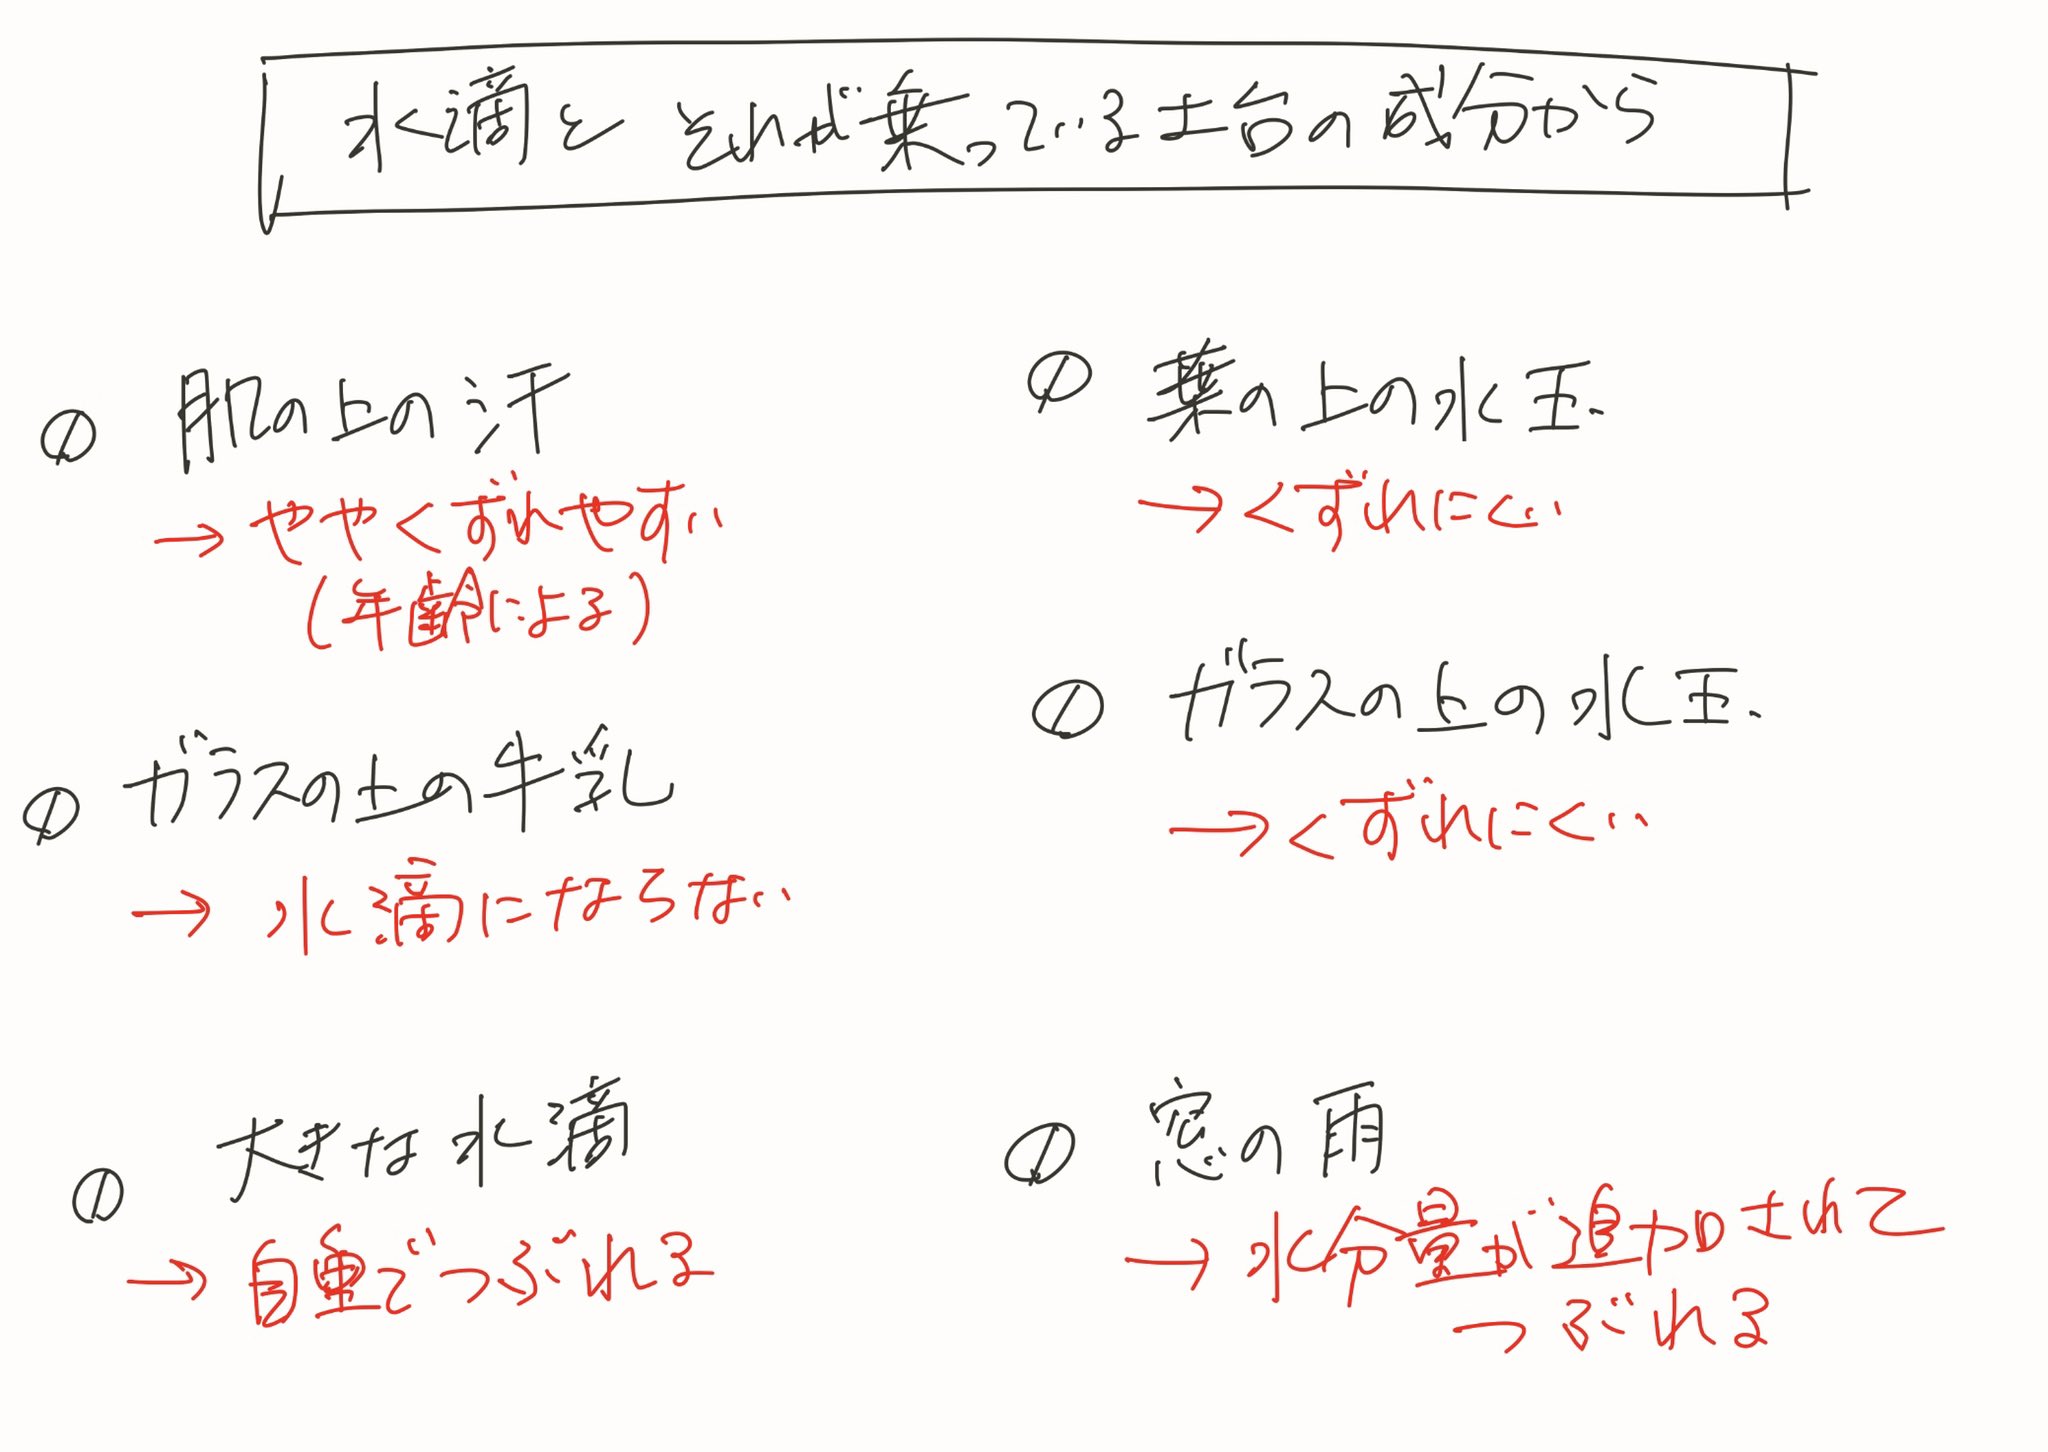 水滴と それが乗っている土台の成分から
① 肌の上の汗
→ ややくずれやすい
(年齢による)
① ガラスの上の牛乳
→ 水滴にならない
① 大きな水滴
→ 自重でつぶれる
① 葉の上の水玉
→ くずれにくい
① ガラスの上の水玉
→ くずれにくい
① 窓の雨
→ 水分量が追加されて
つぶれる